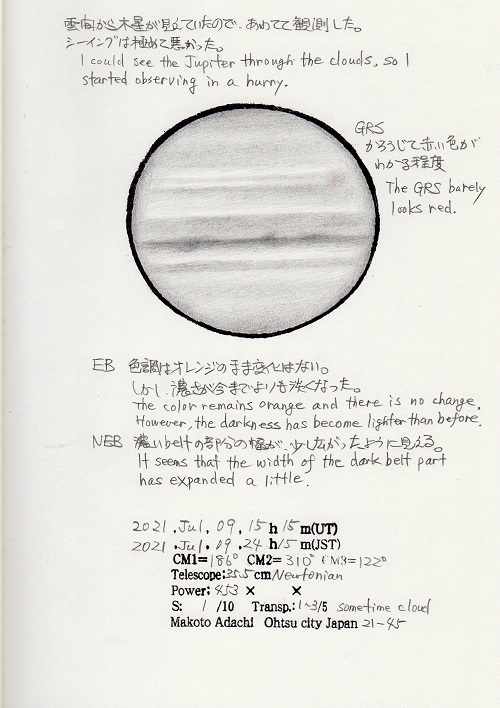 雲間から木星が見えていたので、あわてて観測した。
シーイングは極めて悪かった。
I could see the Jupiter through the clouds, so I
started observing in a hurry.
GRS
かろうじて赤い色が
わかる程度
The GRS barely
looks red.
EB 色調はオレンジのまま変化はない。
しかし、濃さが今までよりも淡くなった。
The color remains orange and there is no change.
However, the darkness has become lighter than before.
NEB 濃いbeltの部分の幅が、少し広がったように見える。
It seems that the width of the dark belt part
has expanded a little.
2021.Jul.09.15h15m(UT)
2021.Jul.09.24h15m(JST)
CM1=186° CM2=310° CM3=122°
Telescope:35.5cm Newtonian
Power:453× ×
S: 1/10 Transp.:1~3/5 sometime cloud
Makoto Adachi Ohtsu city Japan 21-45